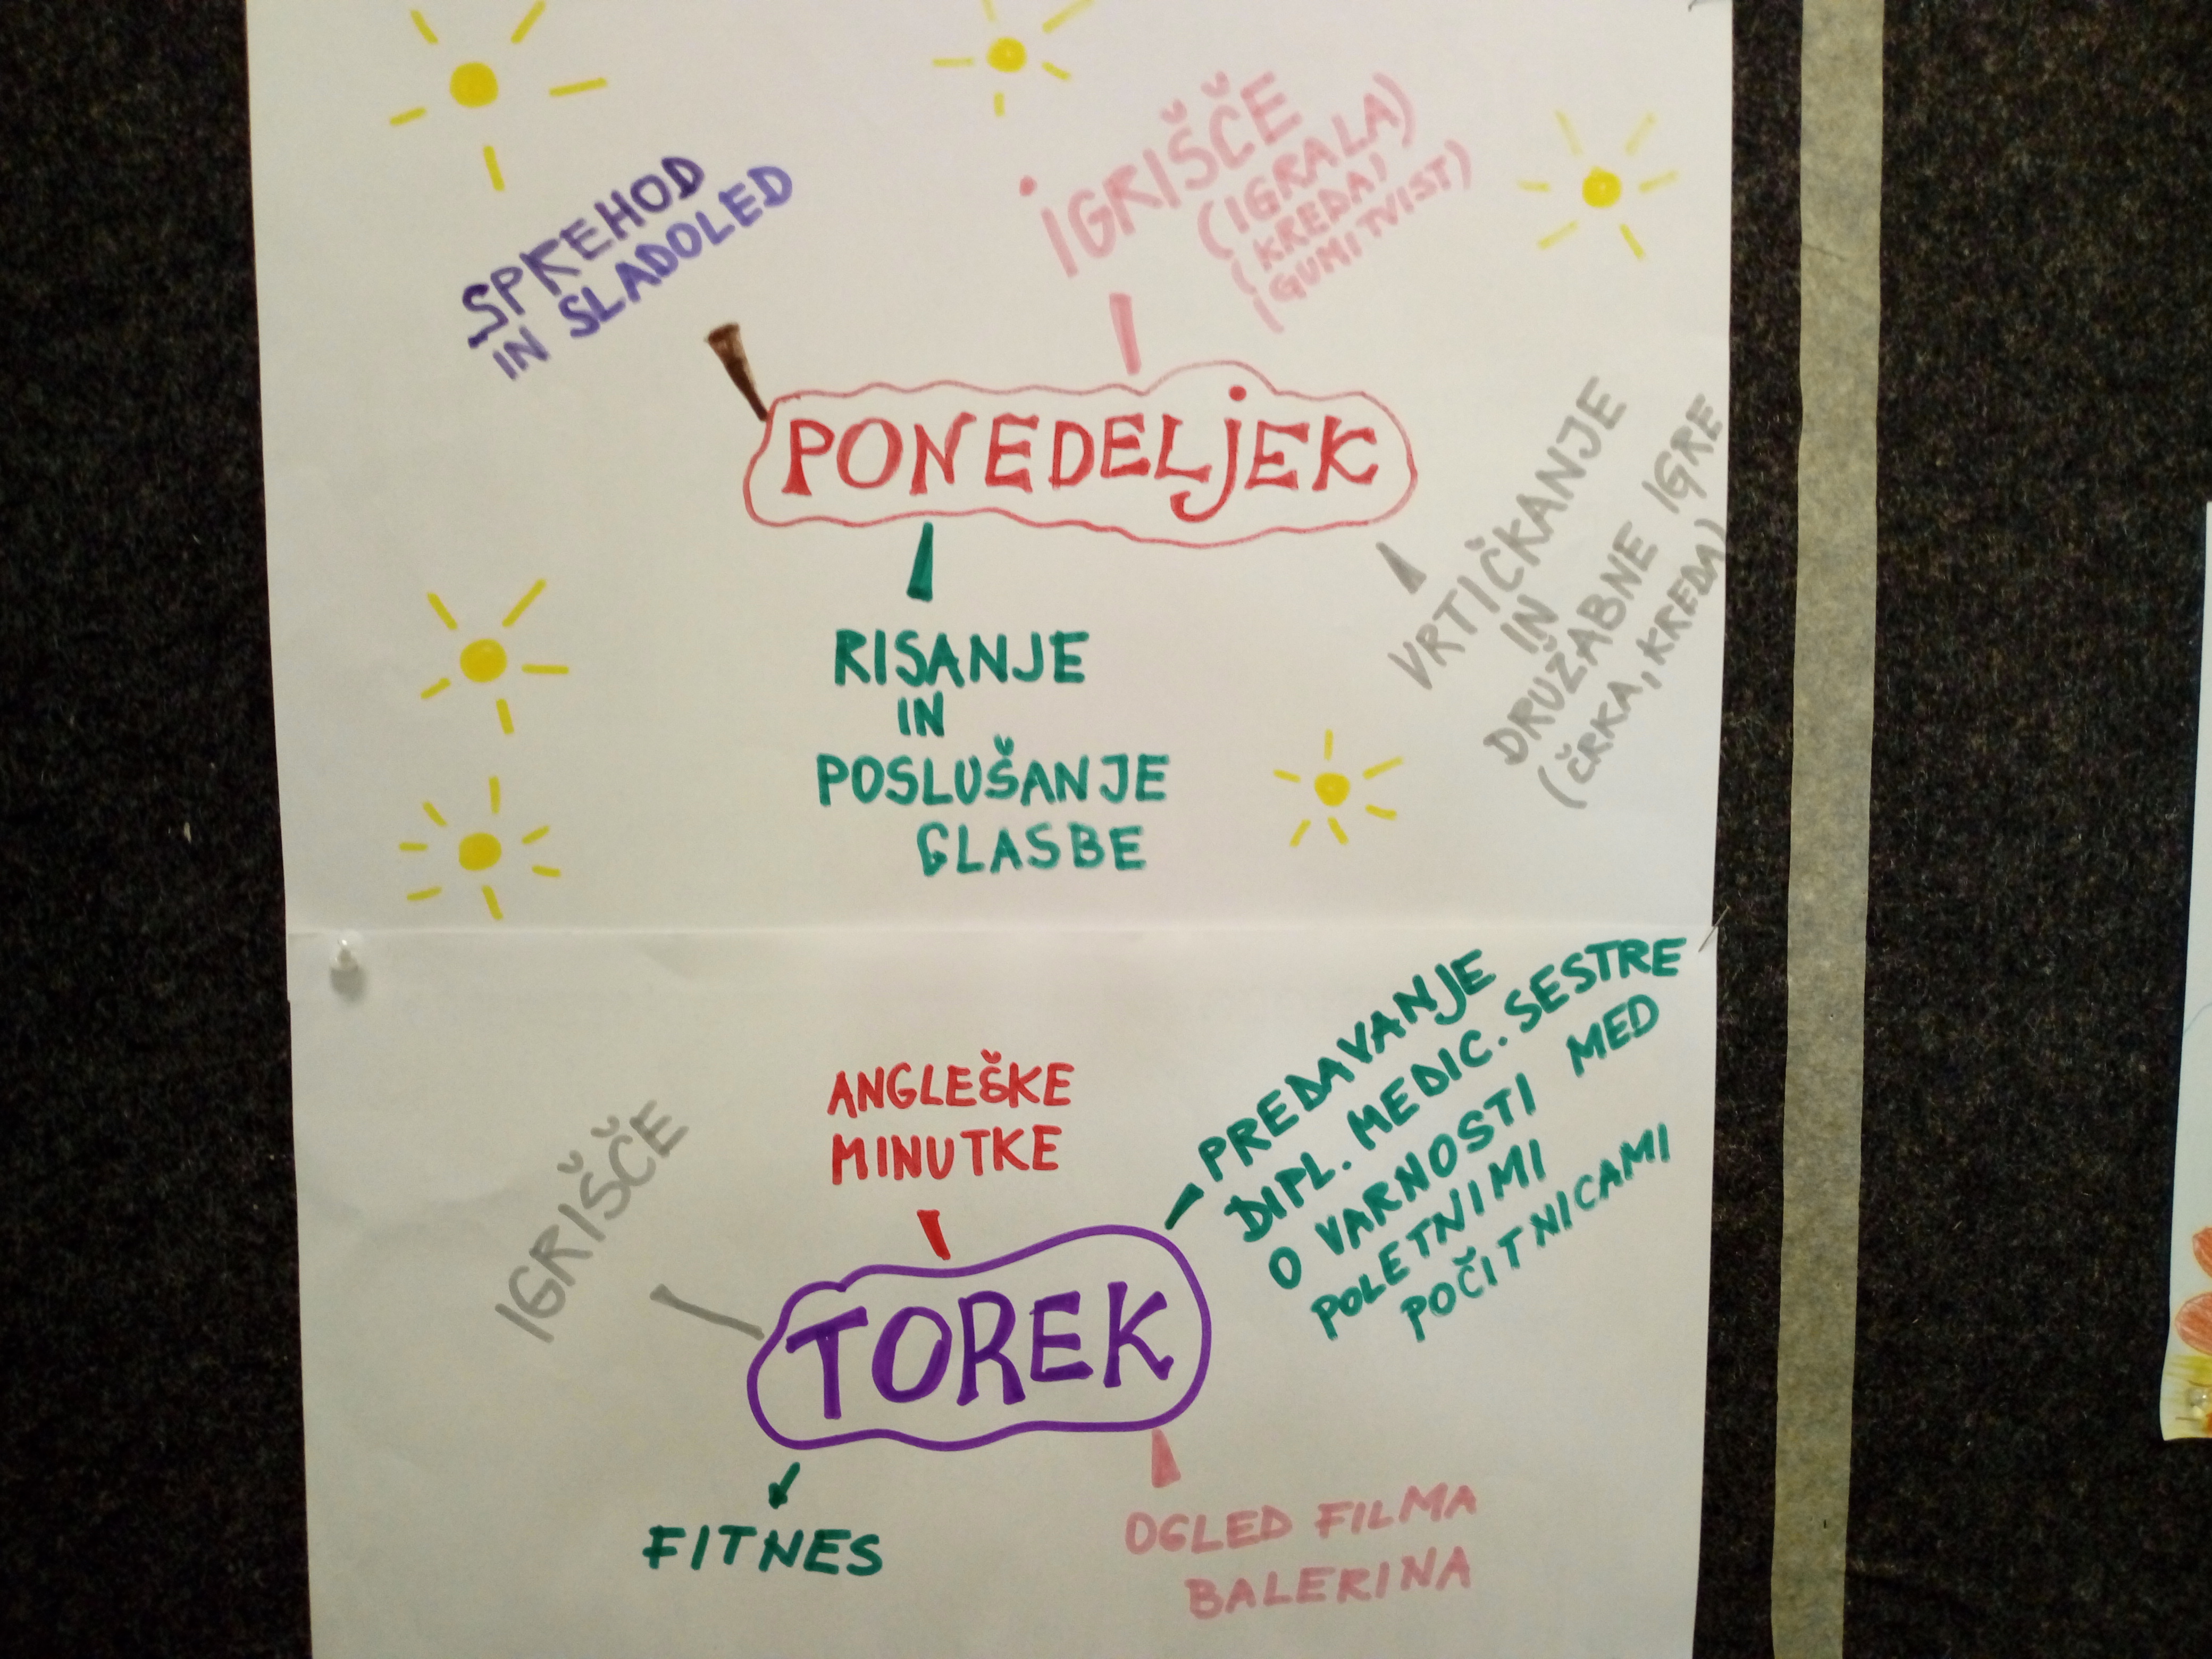 SPREHOD
IN SLADOLED
IGRIŠČE
(IGRALA)
(KREDA,
(GUMITVIST)
PONEDELJEK
VRTIČKANJE
IN
DRUŽABNE IGRE
(ČRKA, KREDA)
RISANJE
IN
POSLUŠANJE
GLASBE
PREDAVANJE
DIPL. MEDIC. SESTRE
O VARNOSTI MED
POLETNIMI
POČITNICAMI
ANGLEŠKE
MINUTKE
IGRIŠČE
TOREK
FITNES
OGLED FILMA
BALERINA